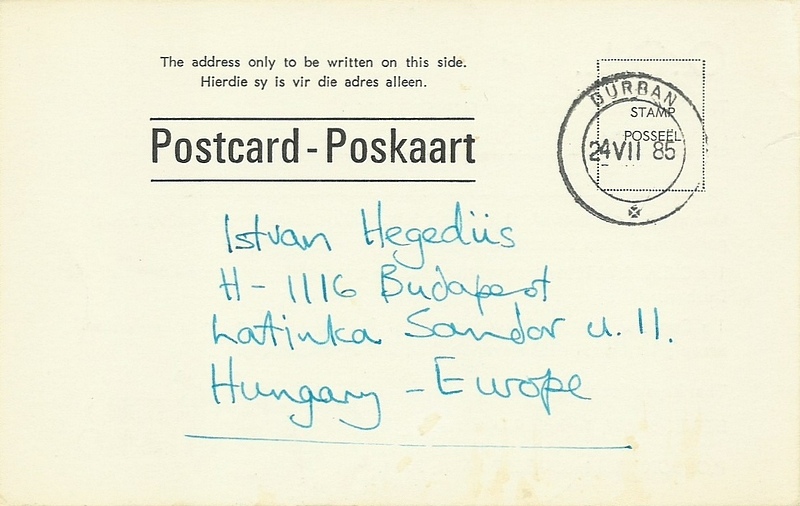 The address only to be written on this side.
Hierdie sy is vir die adres alleen.
Postcard - Poskaart
DURBAN
STAMP
POSSEËL
24 VII 85
Istvan Hegedüs
H - 1116 Budapest
Latinka Sandor u. 11.
Hungary - Europe